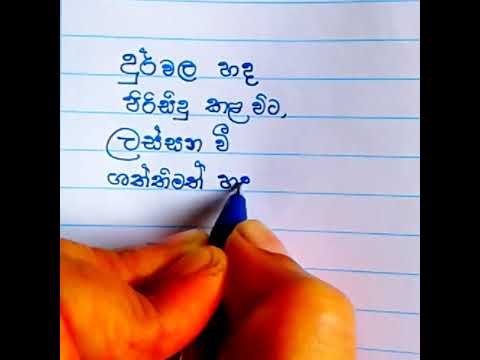 දුර්වල හද
පිරිසිදු කළ විට,
ලස්සන වී
ශක්තිමත්